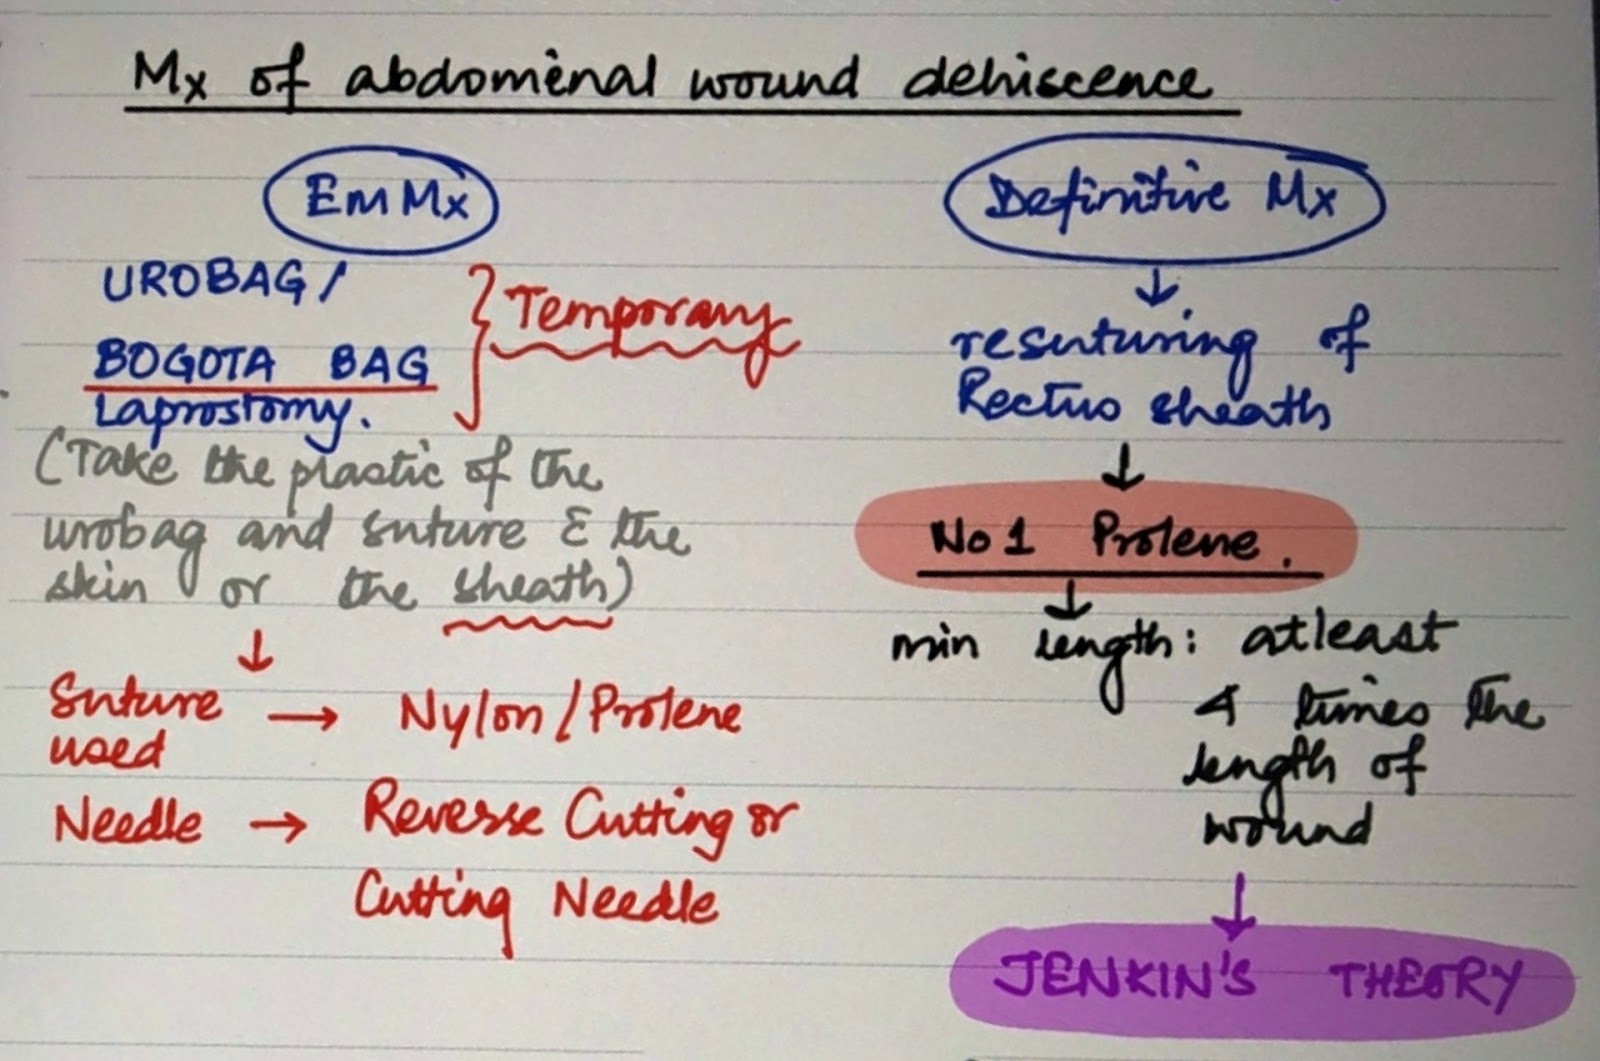 Mx of abdominal wound dehiscence
Em Mx
UROBAG /
BOGOTA BAG
Laprostomy.
Temporary
(Take the plastic of the
urobag and suture c̄ the
skin or the sheath)
Suture used → Nylon / Prolene
Needle → Reverse Cutting or
Cutting Needle
Definitive Mx
resuturing of
Rectus sheath
No 1 Prolene.
min length: atleast
4 times the
length of
wound
JENKIN'S THEORY